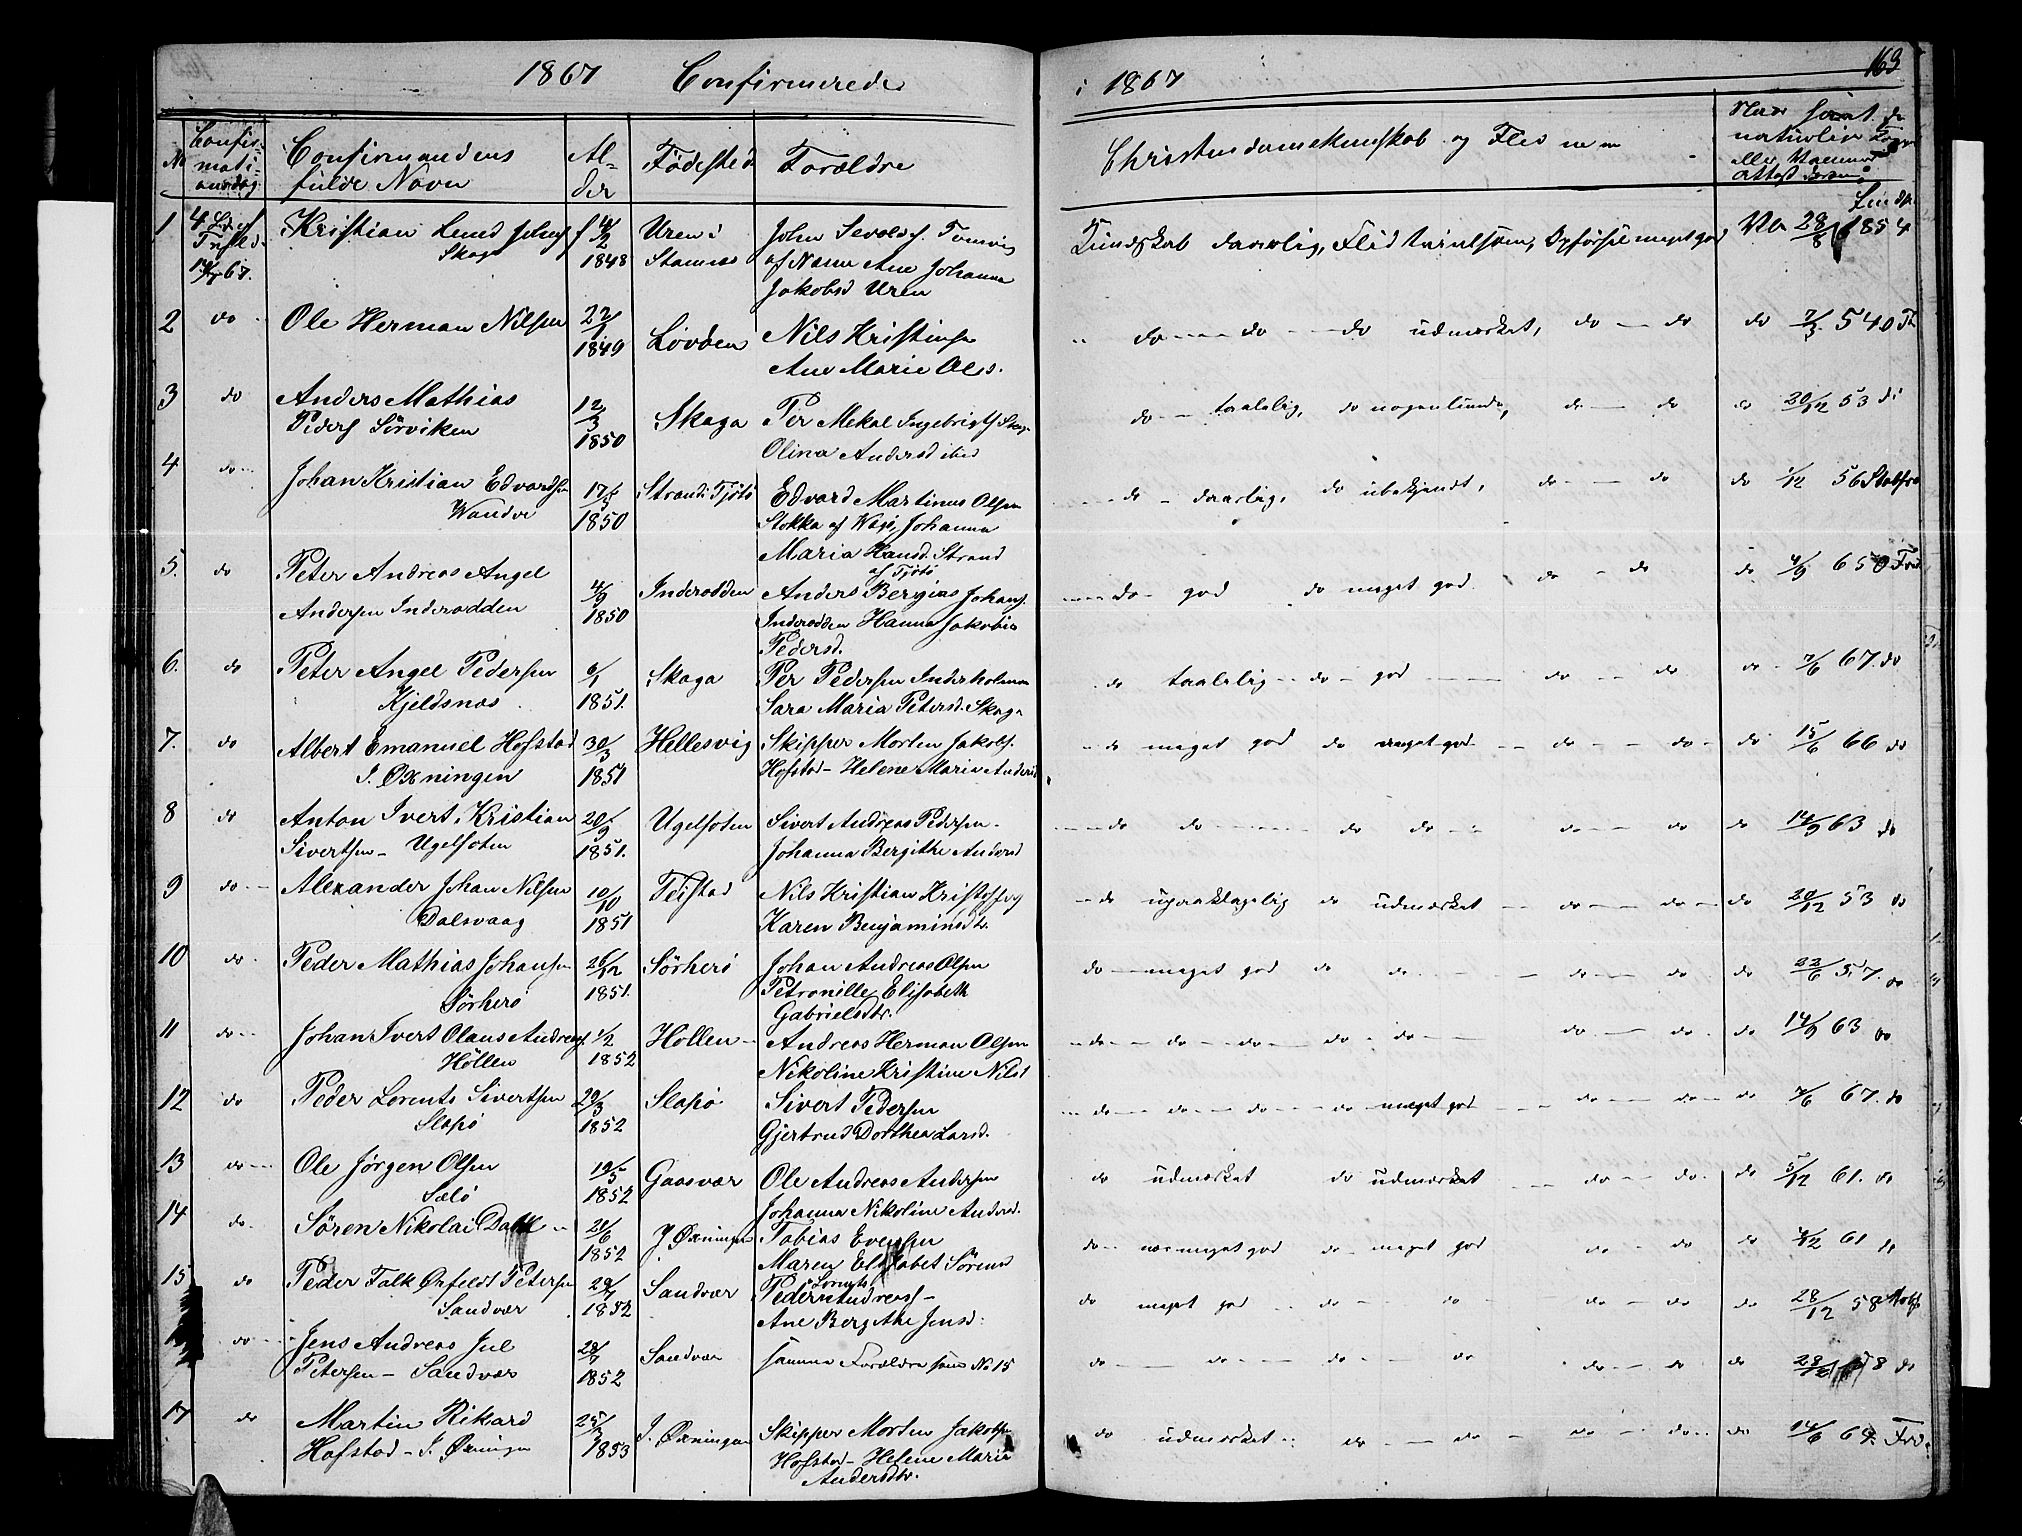 1867 Confirmerede
i 1867
163
No
Confir-
mati-
onsdag
Confirmandens
fulde Navn
Al-
der
Fødested
Forældre
Christendomskundskab og Flid
naturlige
eller Vaccine
attest
1 Kristian Lund Johns
Skaga
1848
Uren i
Stamnes
John
af Nesna Ane Johanna
Jakobsd Uren
Kundskab daarlig, Flid tvivlsom, Opførsel meget god
28/8 1854
2 do Ole Herman Nilsen 22/1
1849 Lovden Nils Kristinsen
Ane Marie Ols.
do do do udmærket, do do do 7/3 54
3 do Anders Mathias
Peders Sörviken 12/3
1850 Skaga Per Mekal Ingebrigts Skaga
Olina Andersd ibid
do taalelig, do nogenlunde, do do do 20/12 53 di
4 do Johan Kristian Edvardsen
Wandve 17/5
1850 Strand i Tjötö Edvard Martinus Olsen
Stokka af Wegö, Johanna
Maria Hansd. Strand
af Tjötö
do daarlig, do ubekjendt, do do do 1/12 56
5. do Peter Andreas Angel
Andersen Inderodden 4/9
1850 Inderodden Anders Bergias Johans.
Inderodden Hanna Jakobia
Pedersd.
do god do meget god do do do 4/9 65
6. do Peter Angel Pedersen
Kjeldsnæs 6/1
1851. Skaga Per Pedersen Inderholmen
Sara Maria Petersd. Skaga
do taalelig do god do do do 7/6 67. do
7. do Albert Emanuel Hofstad
I. Øxningen 30/3
1851 Hellesvig Skipper Morten Jakobs.
Hofstad - Helene Maria Andersd
do meget god do meget god do do do 15/6 66 do
8 do Anton Ivert Kristian
Sivertsen - Ugelfoten 20/9
1851. Ugelfoten Sivert Andreas Pedersen
Johanna Bergithe Andersd
do do do do do do do 14/9 63 do
9 do Alexander Johan Nilsen
Dalsvaag 10/10
1851 Teistad Nils Kristian Kristoffers
Karen Benjaminsdtr.
do upaaklagelig do udmærket do do do 20/12 53 do
10 do Peder Mathias Johansen
Sörherö 26/12
1851. Sörherö Johan Andreas Olsen
Petronille Elisabeth
Gabrielsdtr.
do meget god do do do do do 22/6 57. do
11 do Johan Ivert Olaus Andreas.
Höllen 1/2
1852 Hollen Andreas Herman Olsen
Nikoline Kristine Nilsd
do do do do do do do do 14/9 63 do
12 do Peder Lorents Sivertsen
Slapö 29/3
1852 Slapö Sivert Pedersen
Gjertrud Dorthea Larsd.
do do do do meget god do do do 7/6 67. do
13 do Ole Jörgen Olsen
Sælö 19/5
1852 Gaasvær Ole Andreas Andersen
Johanna Nikoline Andersd.
do udmærket do udmærket do do do 5/12 61. do
14 do Sören Nikolai Dahl
6
1852 I Øxningen Tobias Evensen
Maren Elisabet Sörensd
do næs meget god do meget god do do do 61 do
15 do Peder Falk Orfeldt Petersen
Sandvær
1852 Sandvær Peder Lorents
Andreass-
Ane Bergithe Jensd.
do meget god do do do do do 28/12 58
do Jens Andreas Jul
Petersen - Sandvær
1852 Sandvær samme Forældre som No 15
do do do do do do do 28 58 do
17 do Martin Rikard
Hofstad - I. Øxningen 25/3
1853 I. Øxningen Skipper Morten Jakobsen
Hofstad - Helene Maria
Andersdtr.
do udmærket do do do do do 14/6